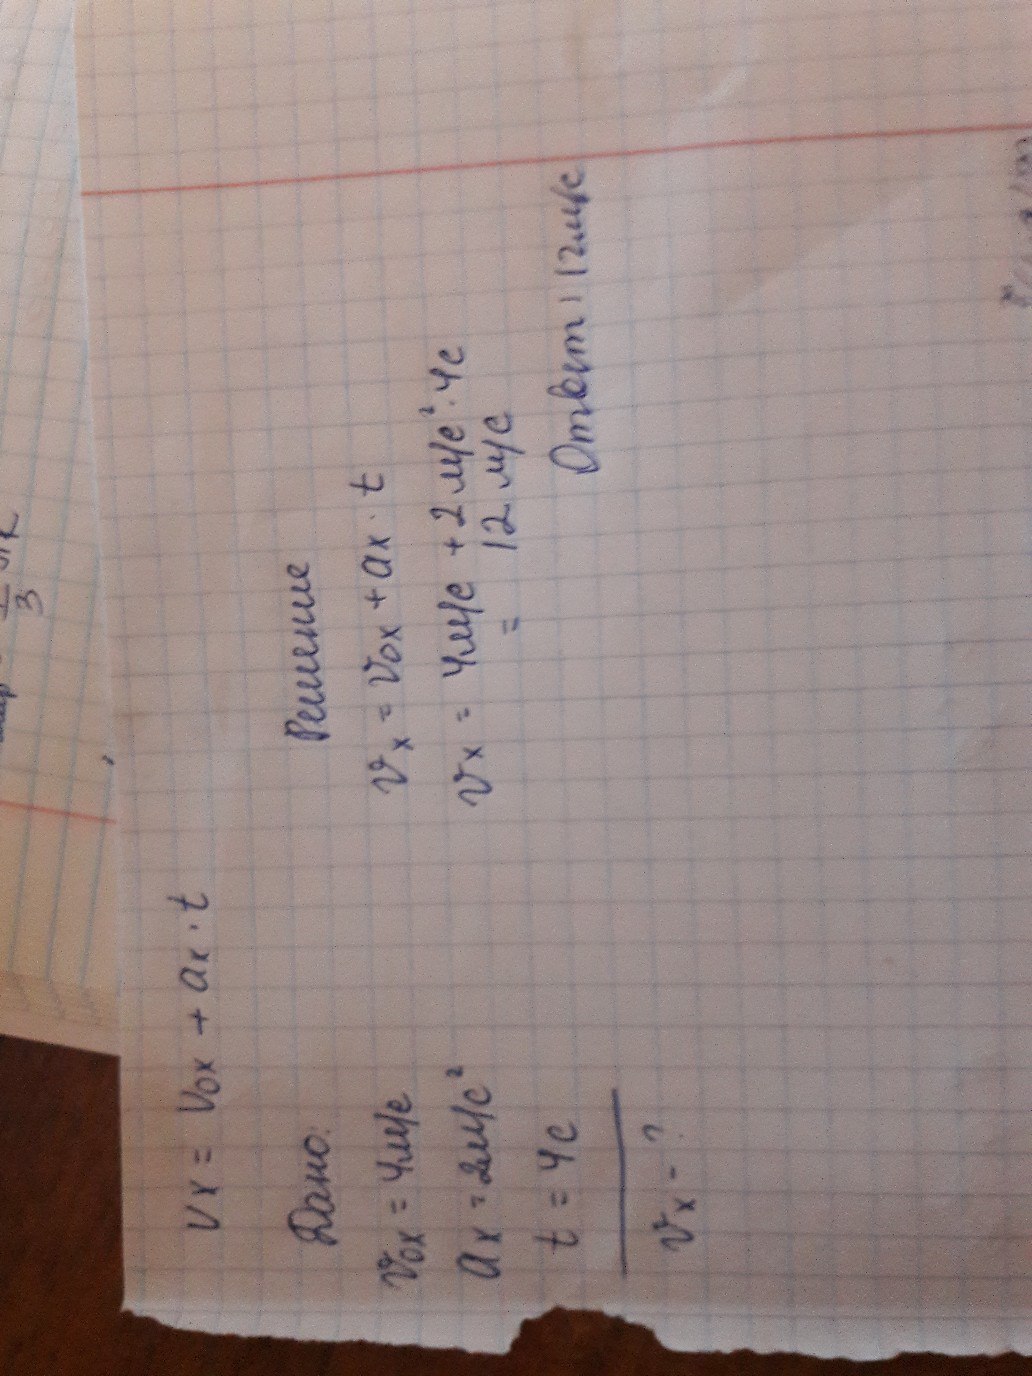 Vx = Vox + ax · t
Дано:
Vox = 4м/с
ax = 2м/с²
t = 4с
Vx - ?
Решение
Vx = Vox + ax · t
Vx = 4м/с + 2 м/с² · 4с
= 12 м/с
Ответ: 12м/с
1/3